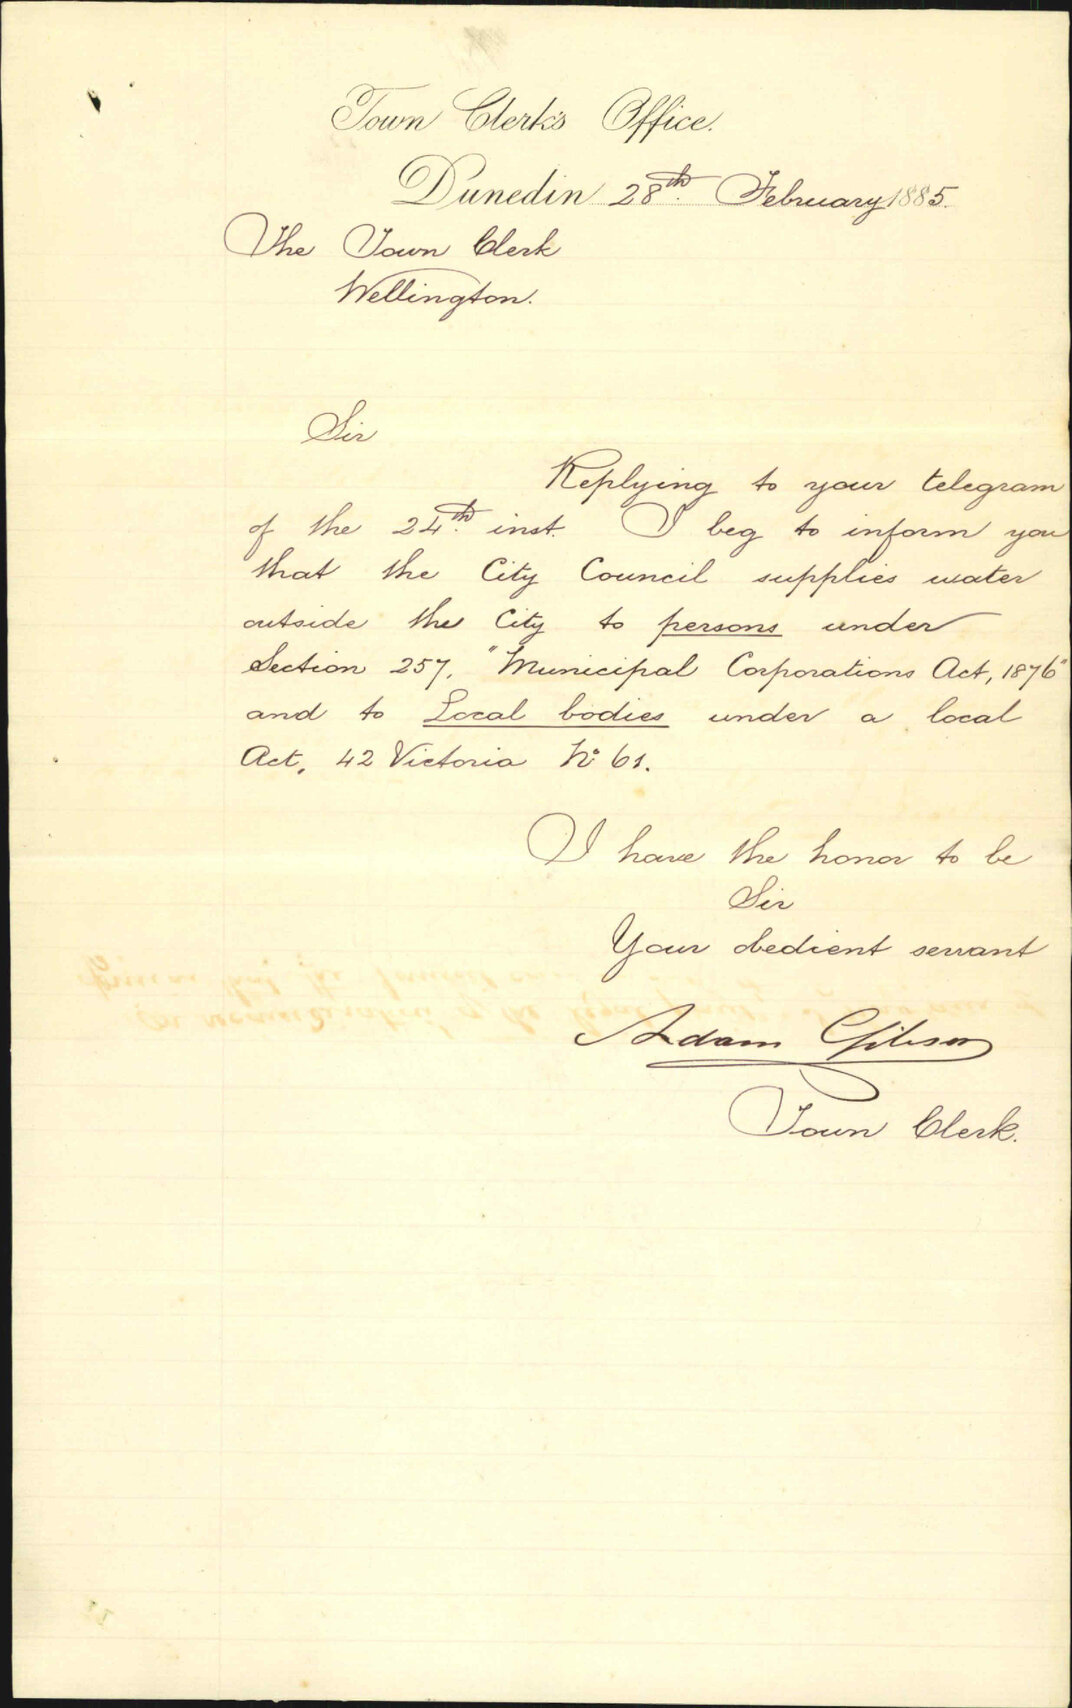 Town Clerk's Office.
Dunedin 28th. February 1885.
The Town Clerk
Wellington.
Sir
Replying to your telegram
of the 24th. inst. I beg to inform you
that the City Council supplies water
outside the City to persons under
Section 257, "Municipal Corporations Act, 1876"
and to Local bodies under a local
Act, 42 Victoria No 61.
I have the honor to be
Sir
Your obedient servant
Adam Gibson
Town Clerk.